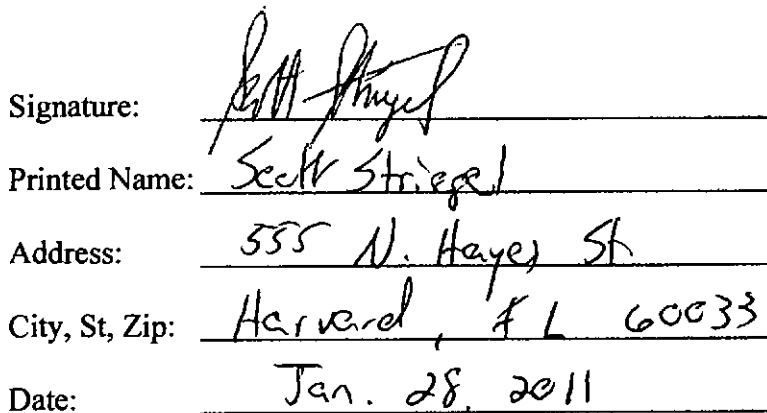 Signature: Scott Striegel
Printed Name: Scott Striegel
Address: 555 N. Hayes St
City, St, Zip: Harvard, IL 60033
Date: Jan. 28, 2011